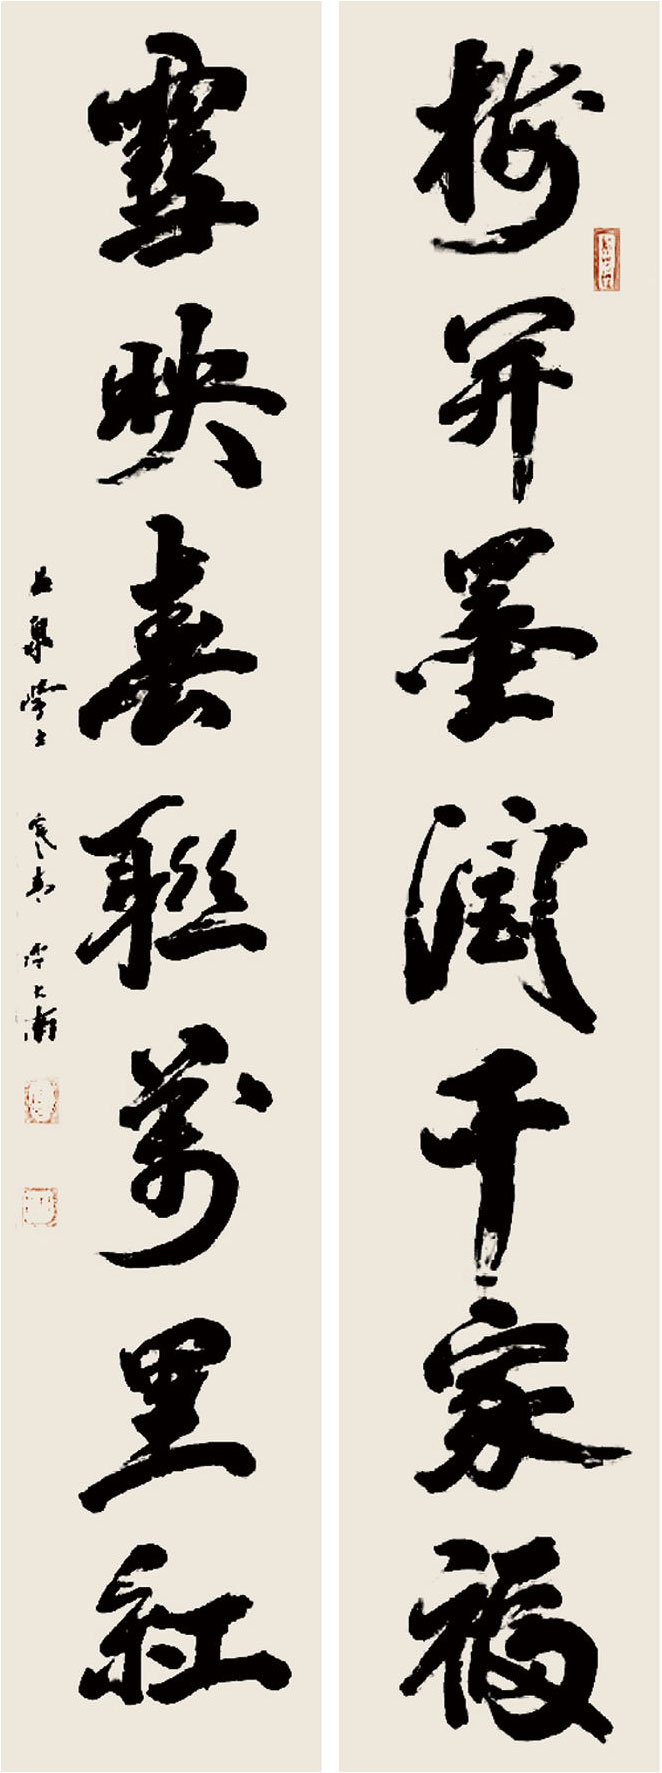 梅開墨潤千家福
雪映春聯萬里紅